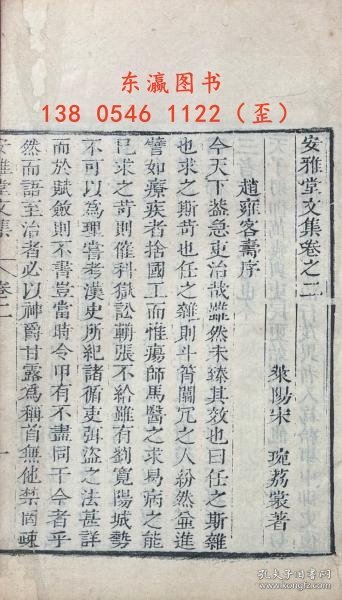 东瀛图书
138 0546 1122（歪）
安雅堂文集卷之二
萊陽宋 琬荔裳著
趙雍客壽序
今天下蓋急吏治哉雖然未臻其效也曰任之斯雜
也求之斯苛也任之雜則斗筲闒冗之人紛然並進
譬如療疾者捨國工而惟瘍師馬醫之求曷病之能
已求之苛則催科獄訟輈張不給雖有劉寬陽城勢
不可以為理嘗考漢史所紀諸循吏弭盜之法甚詳
而於賦斂則不書豈當時令甲有不盡同于今者乎
然而語至治者必以神爵甘露為稱首無他禁罔疎
安雅堂文集 卷二 一
孔夫子旧书网